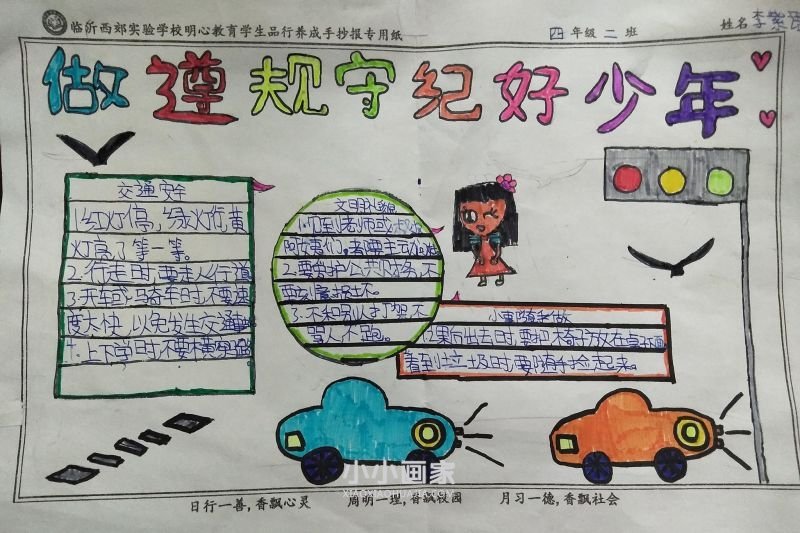 临沂西郊实验学校明心教育学生品行养成手抄报专用纸
四年级二班
姓名李紫
做遵规守纪好少年
交通安全
1.红灯停，绿灯行，黄
灯亮了等一等。
2.行走时要走人行道
3.开车或骑车时不要速
度太快，以免发生交通
4.上下学时不要横穿
文明礼貌
1.听到老师或
阿姨们，都要主动
2.要爱护公共财务，不
要刻意损坏。
3.不和别人打架不
骂人不跑。
小事随手做
12果后出去时要把椅子放在桌子
看到垃圾时要随手捡起来。
小小画家
日行一善，香飘心灵 周明一理，香飘校园 月习一德，香飘社会